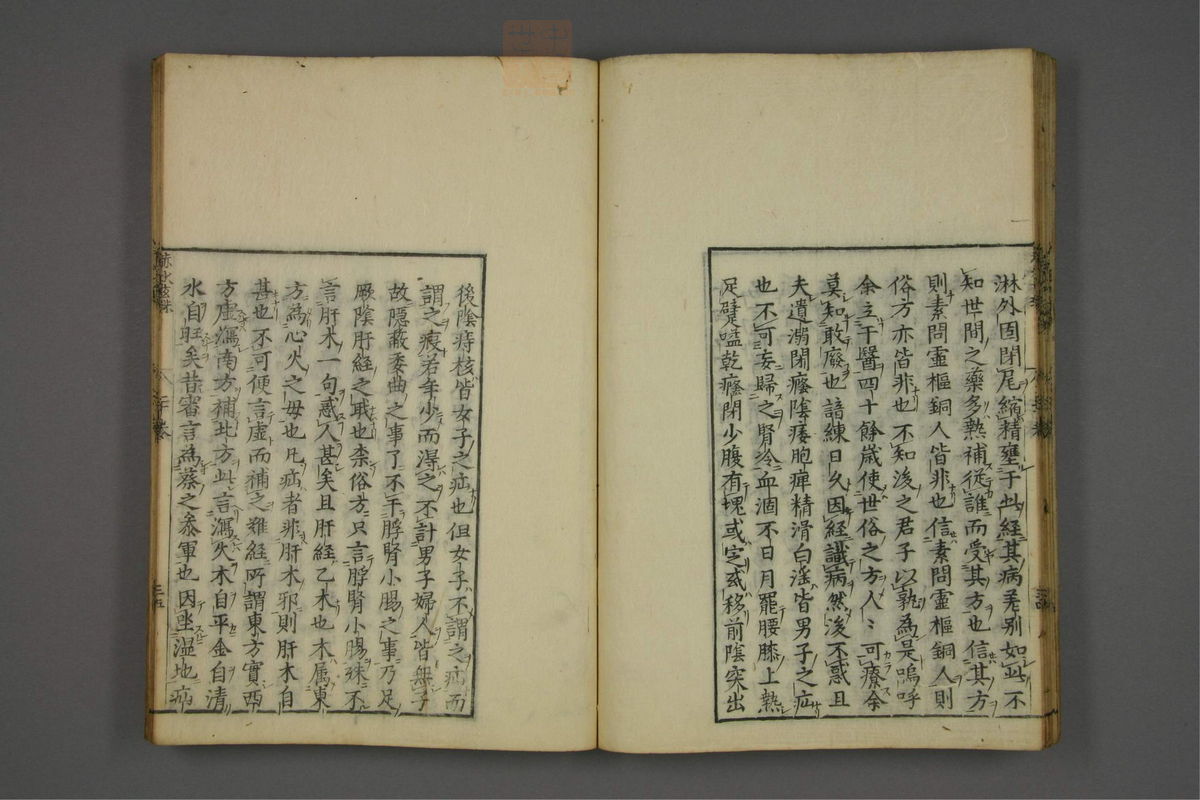 淋外固閉尾縮精壅于此經其病差别如此不
知世間之藥多熱補從誰而受其方也信其方
則素問靈樞銅人皆非也信素問靈樞銅人則
俗方亦皆非也不知後之君子以孰為是嗚呼
余立于醫四十餘歲使世俗之方人〻可療余
莫知敢廢也諳練日久因經識病然後不惑且
夫遺溺閉癃陰痿胞痺精滑白淫皆男子之疝
也不可妄歸之腎冷血涸不日月罷腰膝上熱
足躄嗌乾癃閉少腹有塊或定或移前陰突出
後陰痔核皆女子之疝也但女子不謂之疝而
謂之瘕若年少而得之不計男子婦人皆無子
故隱蔽委曲之事了不干脬腎小腸之事乃足
厥陰肝經之職也柰俗方只言脬腎小腸殊不
言肝木一句惑人甚矣且肝經乙木也木属東
方為心火之母也凡疝者非肝木邪則肝木自
甚也不可便言虚而補之難經所謂東方實西
方虚瀉南方補北方此言瀉火木自平金自清
水自旺矣昔審言為蔡之叅軍也因坐濕地疝